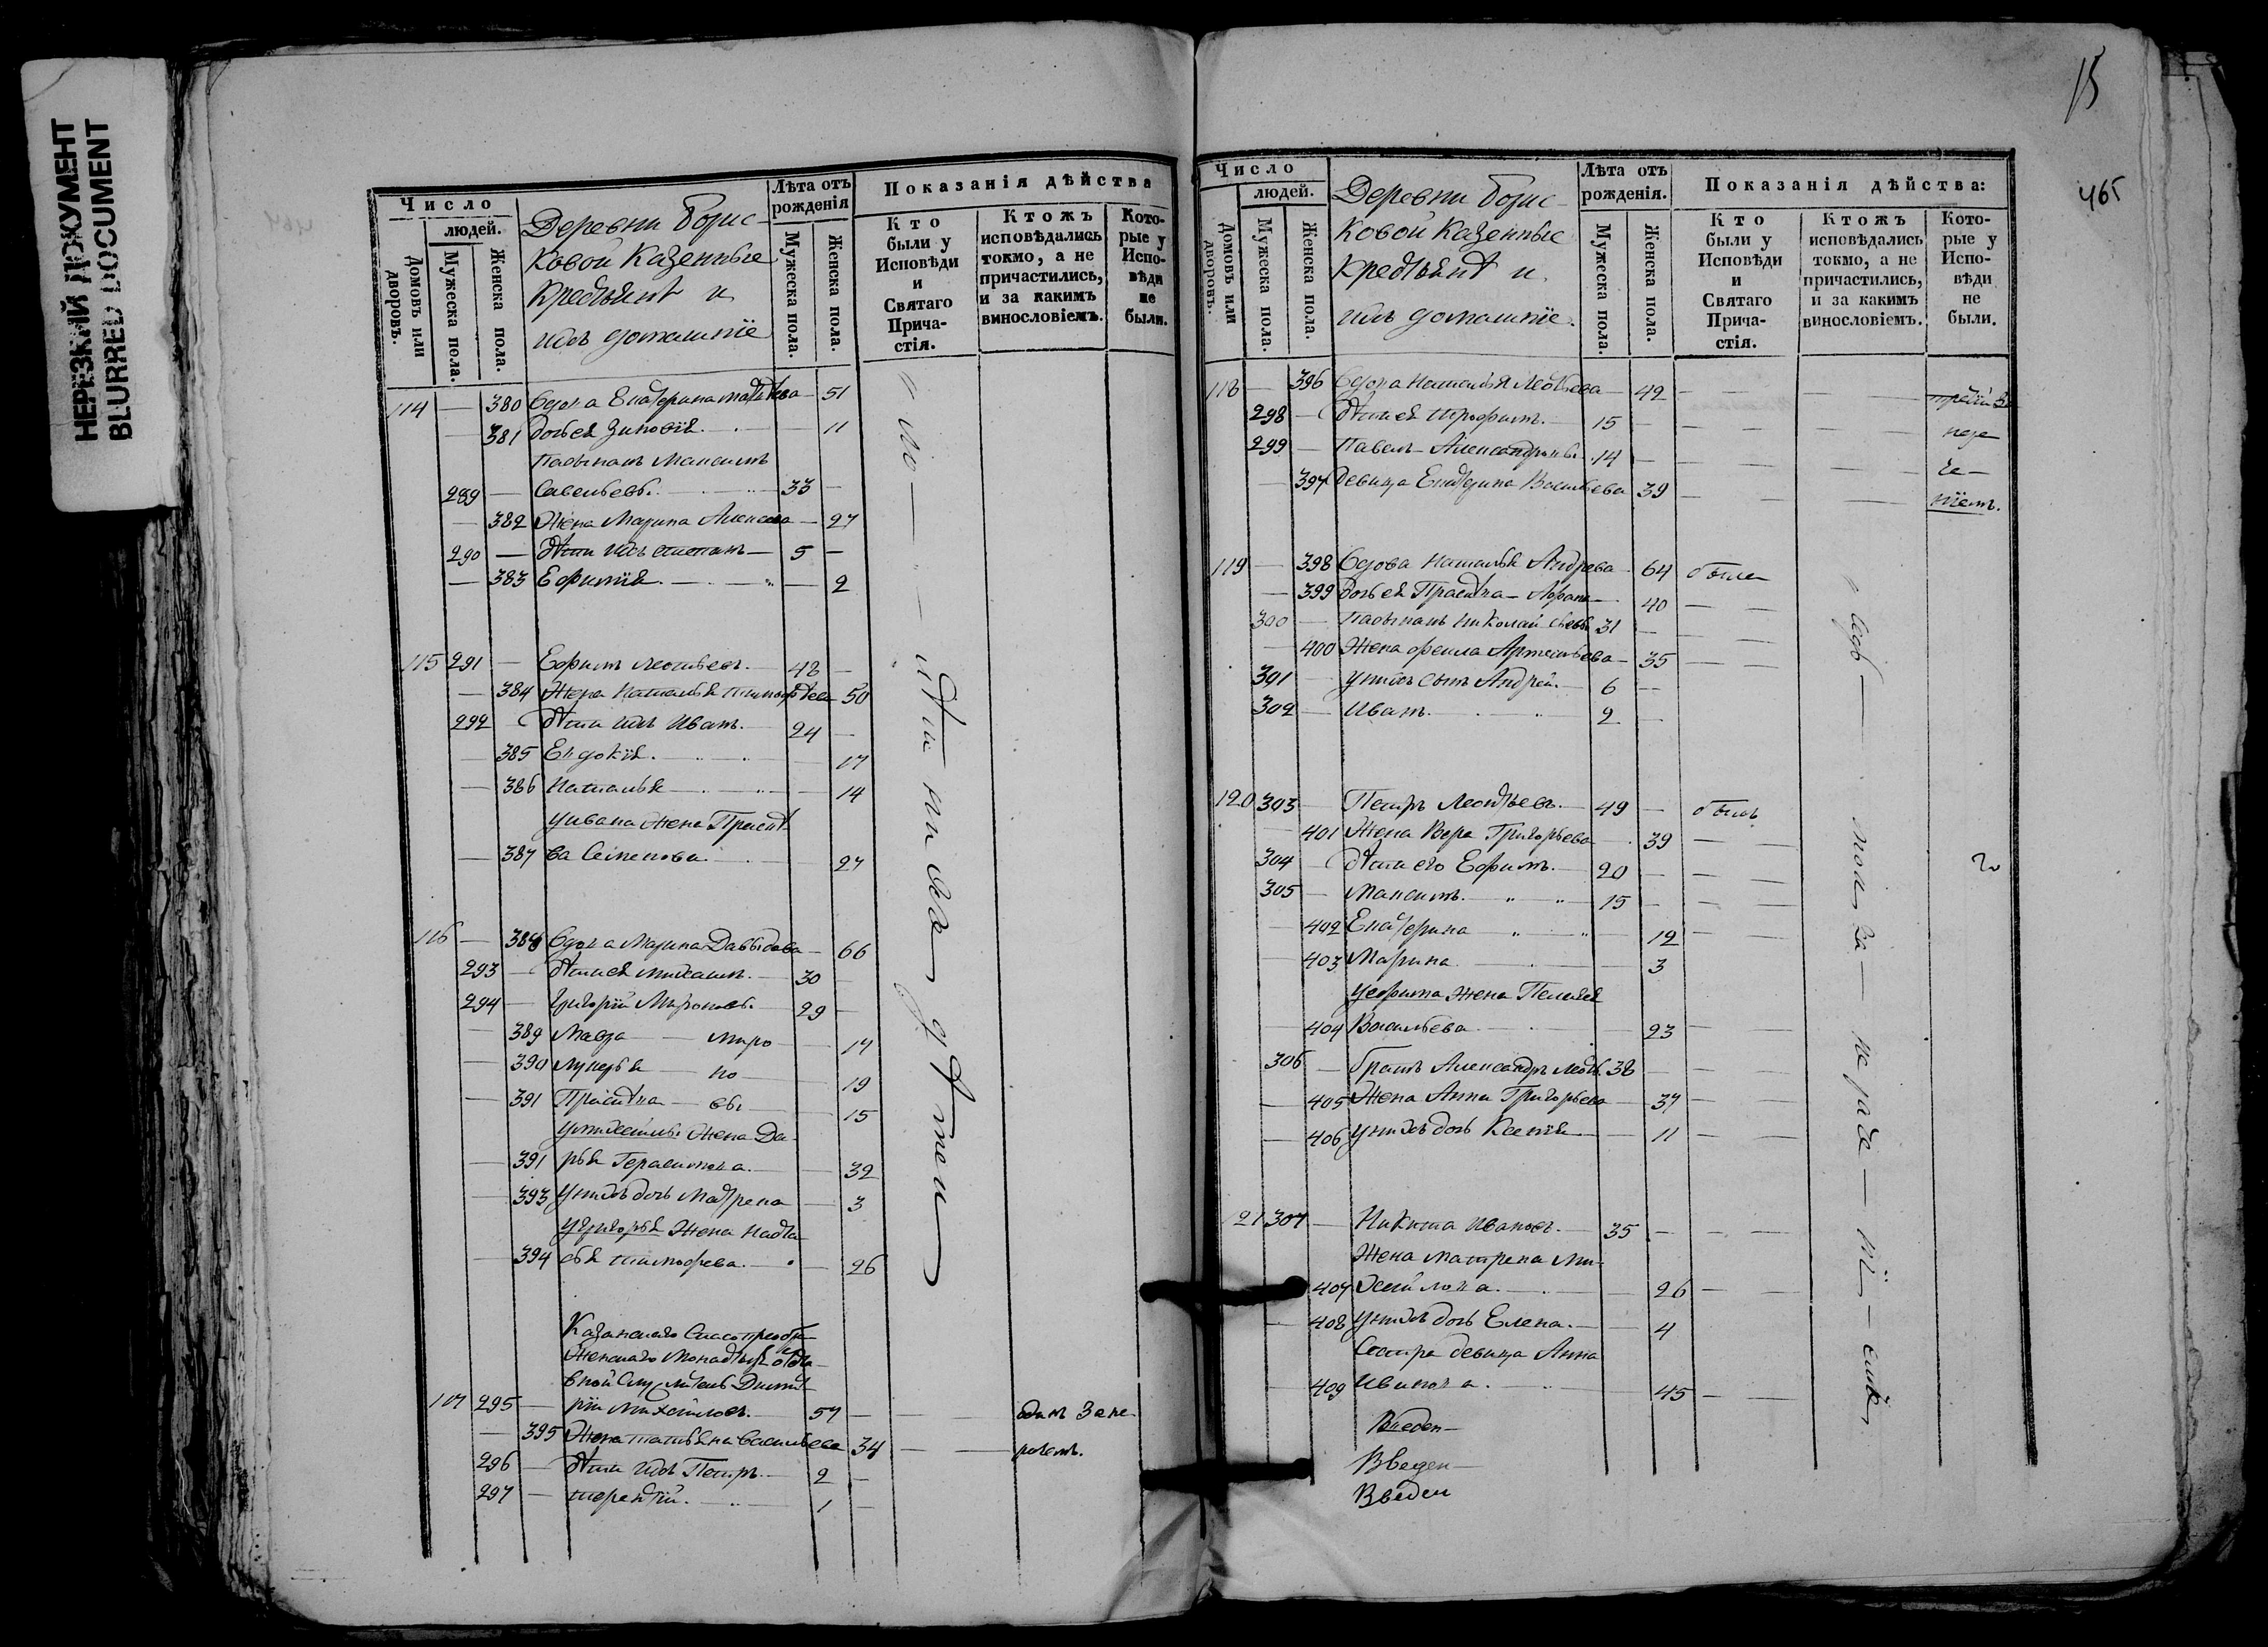 НЕРЕЗКИЙ ДОКУМЕНТ
BLURRED DOCUMENT
Число
людей.
Домовъ или дворовъ.
Мужеска пола.
Женска пола.
Деревни Борис-
ковой Казенные
Крестьянѣ и
ихъ домашніе
Лѣта отъ рожденія
Мужеска пола.
Женска пола.
Показанія дѣйства
Кто были у Исповѣди и Святаго Причастія.
Ктожъ исповѣдались токмо, а не причастились, и за какимъ винословіемъ.
Которые у Исповѣди не были.
114 — 380 Вдова Екатерина Матвѣева — 51
— 381 Дочь ея Зиновія — 11
Пасынакъ Максимъ
289 — Савельевъ 33 —
— 382 Жена Марина Алексеева — 27
290 — Дѣти ихъ Степанъ — 5 —
— 383 Ефимія — 2
115 291 — Ефимъ Леонтьевъ — 48 —
— 384 Жена Наталья Тимофѣева 50
292 Дѣти ихъ Иванъ 24 —
— 385 Евдокія 17
— 386 Наталья — 14
У Ивана Жена Праско-
— 387 ва Семенова 27
116 — 388 Вдова Марина Давыдова — 66
293 — Дѣти ея Михаилъ — 30
294 — Григорій Мироновъ 29 —
— 389 Мавра — Миро 17
— 390 Лукерья — но 19
— 391 — вы 15
У Михаилы Жена Да-
— 391 рья Герасимова 32
— 393 У нихъ дочь Матрена — 3
У Григорья Жена Наста-
— 394 сья Тимофеева — 26
Казанскаго Спасопреобра-
женскаго Монастыря
Служитель Димит-
117 295 — рій Михайловъ — 57 —
— 395 Жена Татьяна Васильева 34 —
296 — Дѣти ихъ Петръ — 2 —
297 — Терентій 1 —
15
465
Число
людей.
Домовъ или дворовъ.
Мужеска пола.
Женска пола.
Деревни Борис-
ковой Казенные
Крестьянѣ и
ихъ домашніе.
Лѣта отъ рожденія.
Мужеска пола.
Женска пола.
Показанія дѣйства:
Кто были у Исповѣди и Святаго Причастія.
Ктожъ исповѣдались токмо, а не причастились, и за какимъ винословіемъ.
Которые у Исповѣди не были.
118 — 396 Вдова Наталья Леонтьева — 42
298 — Дѣти ея Трофимъ 15
299 — Павелъ Александровы 14
— 397 Девица Екатерина Васильева 39
119 — 398 Вдова Наталья Андреева 64 были
— 399 Дочь ея 40
300 — Пасынакъ Николай 31
— 400 Жена Фекла Артемьева — 35
301 — У нихъ сынъ Андрей 6 —
302 — Иванъ 2 —
120 303 Петръ Леонтьевъ 49 — былъ
— 401 Жена Вера Григорьева 39
304 — Дѣти его Ефимъ 20
305 — Максимъ 15
— 402 Екатерина 12
— 403 Марина 3
У Ефима Жена Пелагея
— 404 Васильева 23
306 — Братъ Александръ Леонть. 38
— 405 Жена Анна Григорьева 37
— 406 У нихъ дочь Ксенія — 11
121 307 — Никита Ивановъ 35
Жена Матрена Ми-
407 хайлова 26
— 408 У нихъ дочь Елена — 4
Сестра девица Анна
— 409 Иванова 45
Введен-
Введен-
Введен